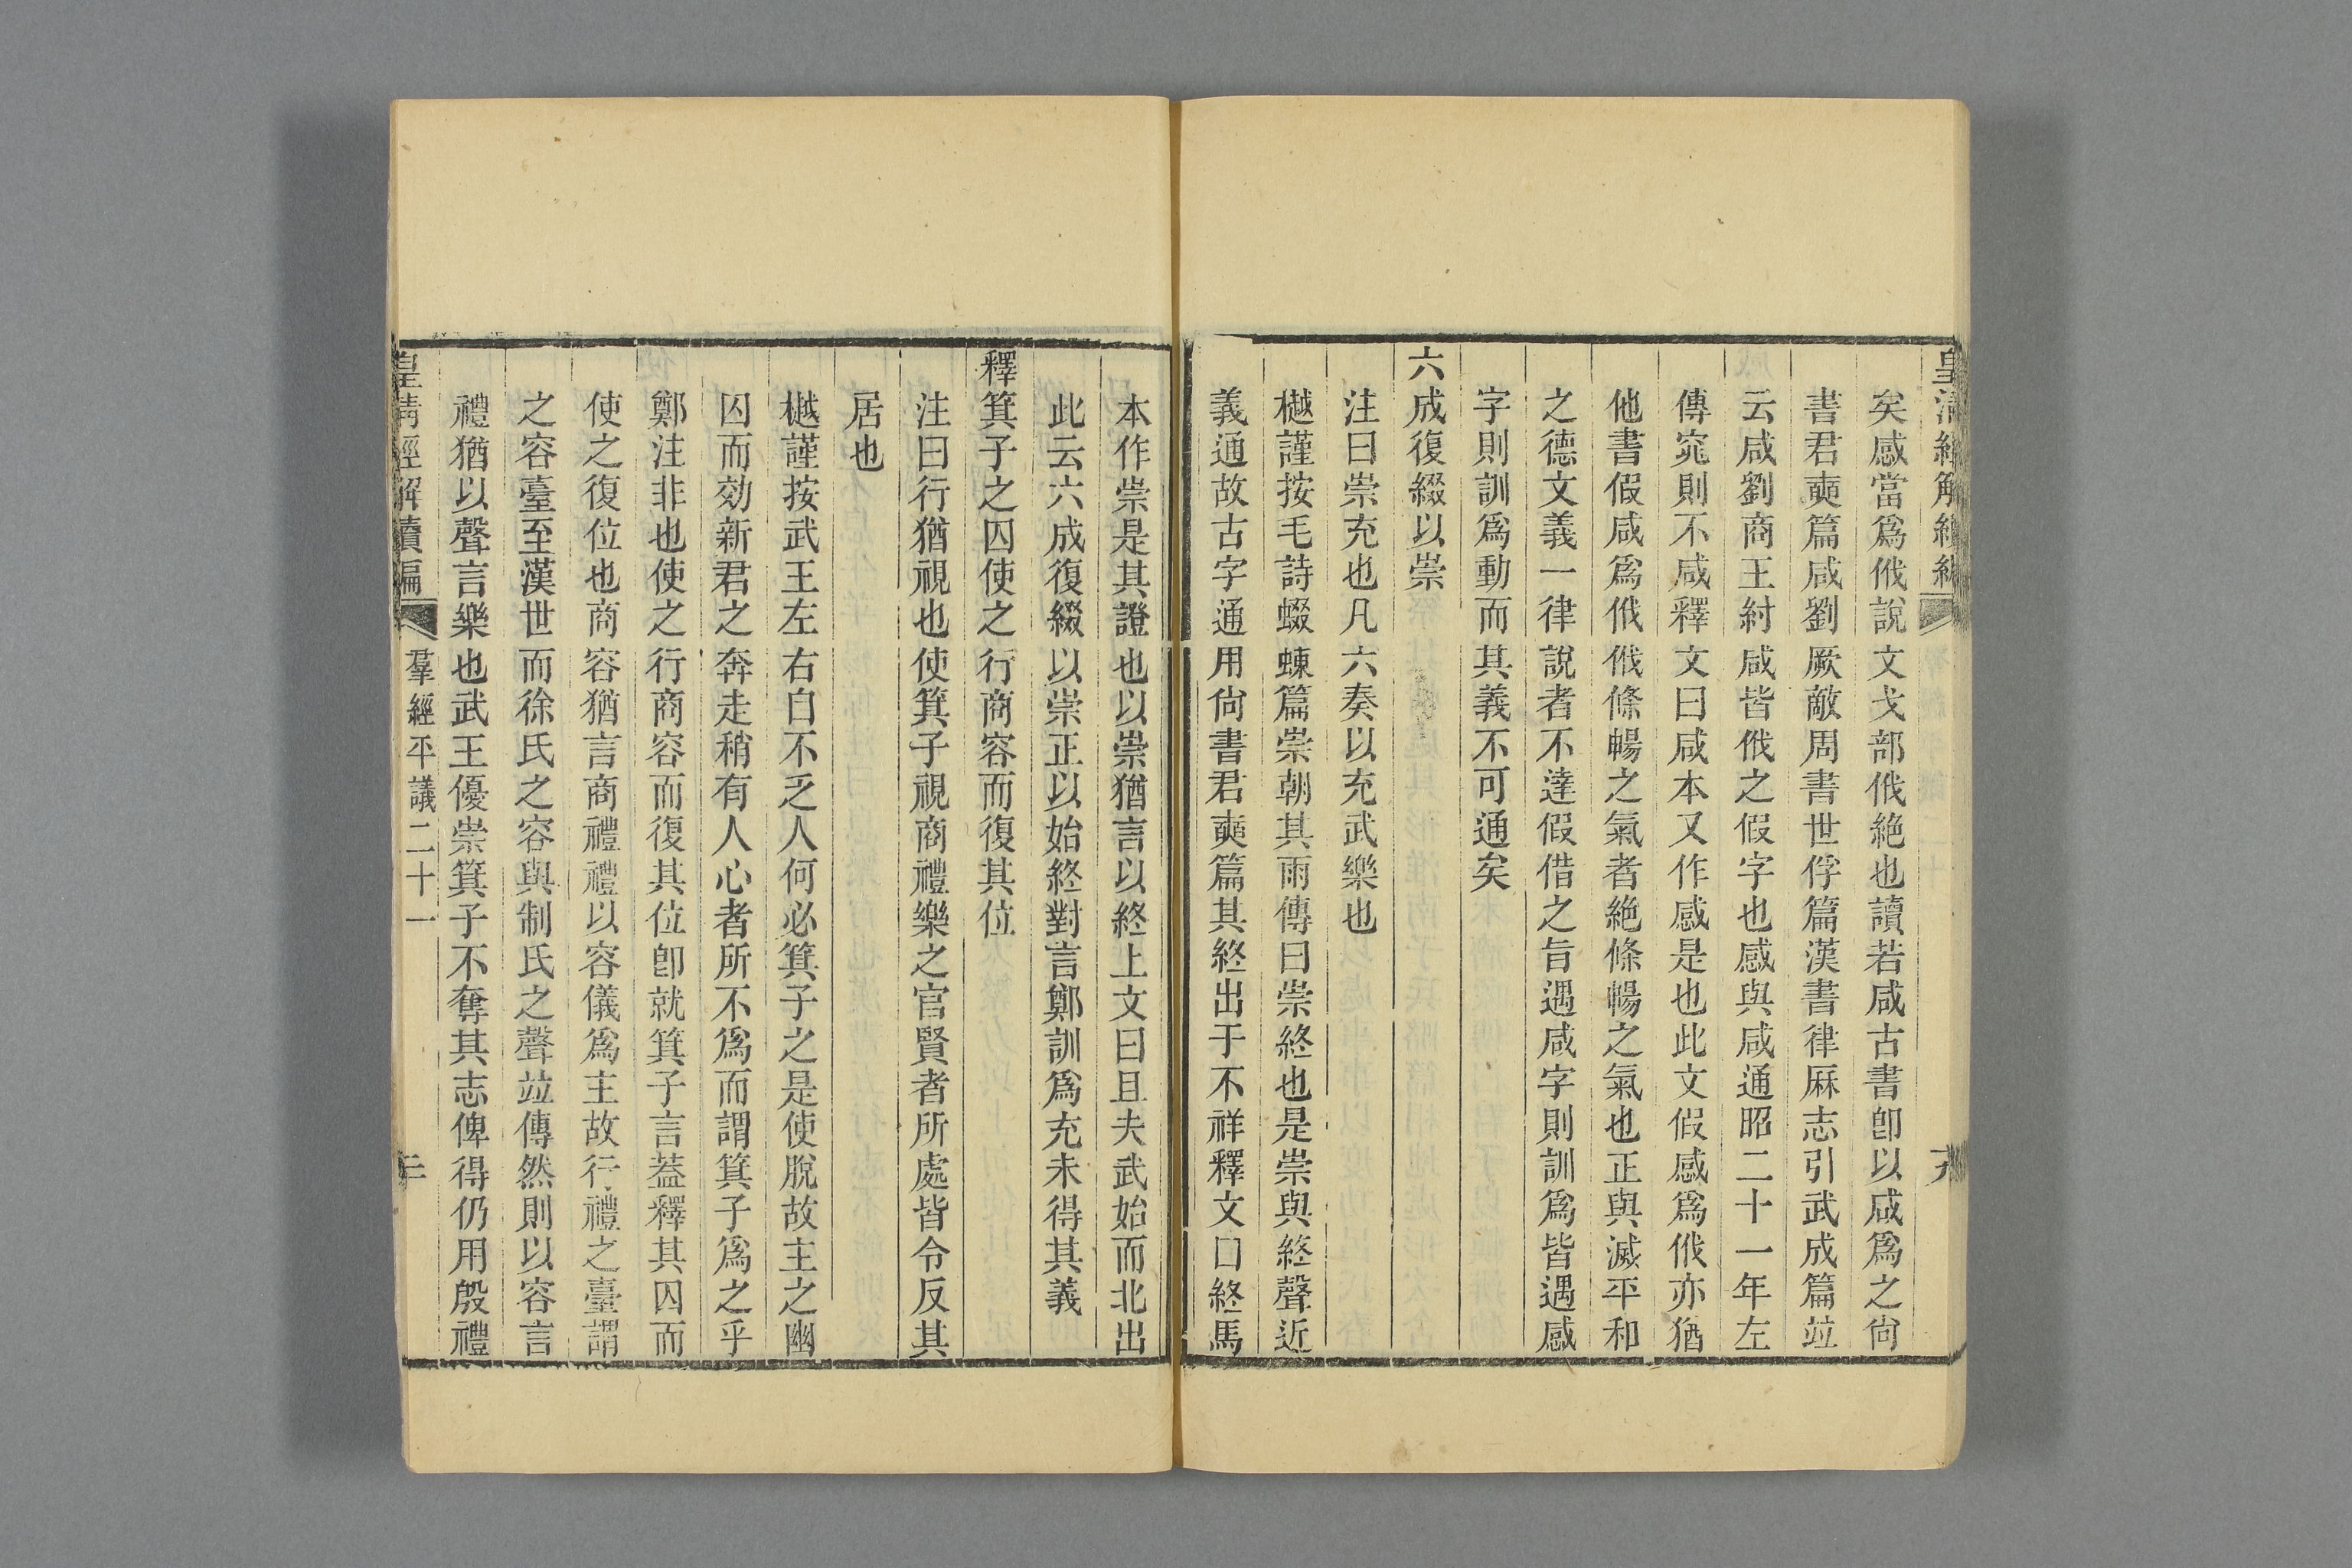 皇清經解續編
矣感當爲㦰說文戈部㦰絶也讀若咸古書卽以咸爲之尙
書君奭篇咸劉厥敵周書世俘篇漢書律厤志引武成篇竝
云咸劉商王紂咸皆㦰之假字也感與咸通昭二十一年左
傳窕則不咸釋文曰咸本又作感是也此文假感爲㦰亦猶
他書假咸爲㦰㦰條暢之氣者絶條暢之氣也正與滅平和
之德文義一律說者不達假借之旨遇咸字則訓爲皆遇感
字則訓爲動而其義不可通矣
六成復綴以崇
注曰崇充也凡六奏以充武樂也
樾謹按毛詩蝃蝀篇崇朝其雨傳曰崇終也是崇與終聲近
義通故古字通用尙書君奭篇其終出于不祥釋文曰終馬
本作崇是其證也以崇猶言以終上文曰且夫武始而北出
此云六成復綴以崇正以始終對言鄭訓爲充未得其義
釋箕子之囚使之行商容而復其位
注曰行猶視也使箕子視商禮樂之官賢者所處皆令反其
居也
樾謹按武王左右自不乏人何必箕子之是使脫故主之幽
囚而効新君之奔走稍有人心者所不爲而謂箕子爲之乎
鄭注非也使之行商容而復其位卽就箕子言蓋釋其囚而
使之復位也商容猶言商禮禮以容儀爲主故行禮之臺謂
之容臺至漢世而徐氏之容與制氏之聲竝傳然則以容言
禮猶以聲言樂也武王優崇箕子不奪其志俾得仍用殷禮
皇清經解續編 羣經平議二十一